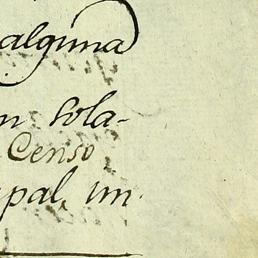 alguna
n sola-
Censo
pal, un